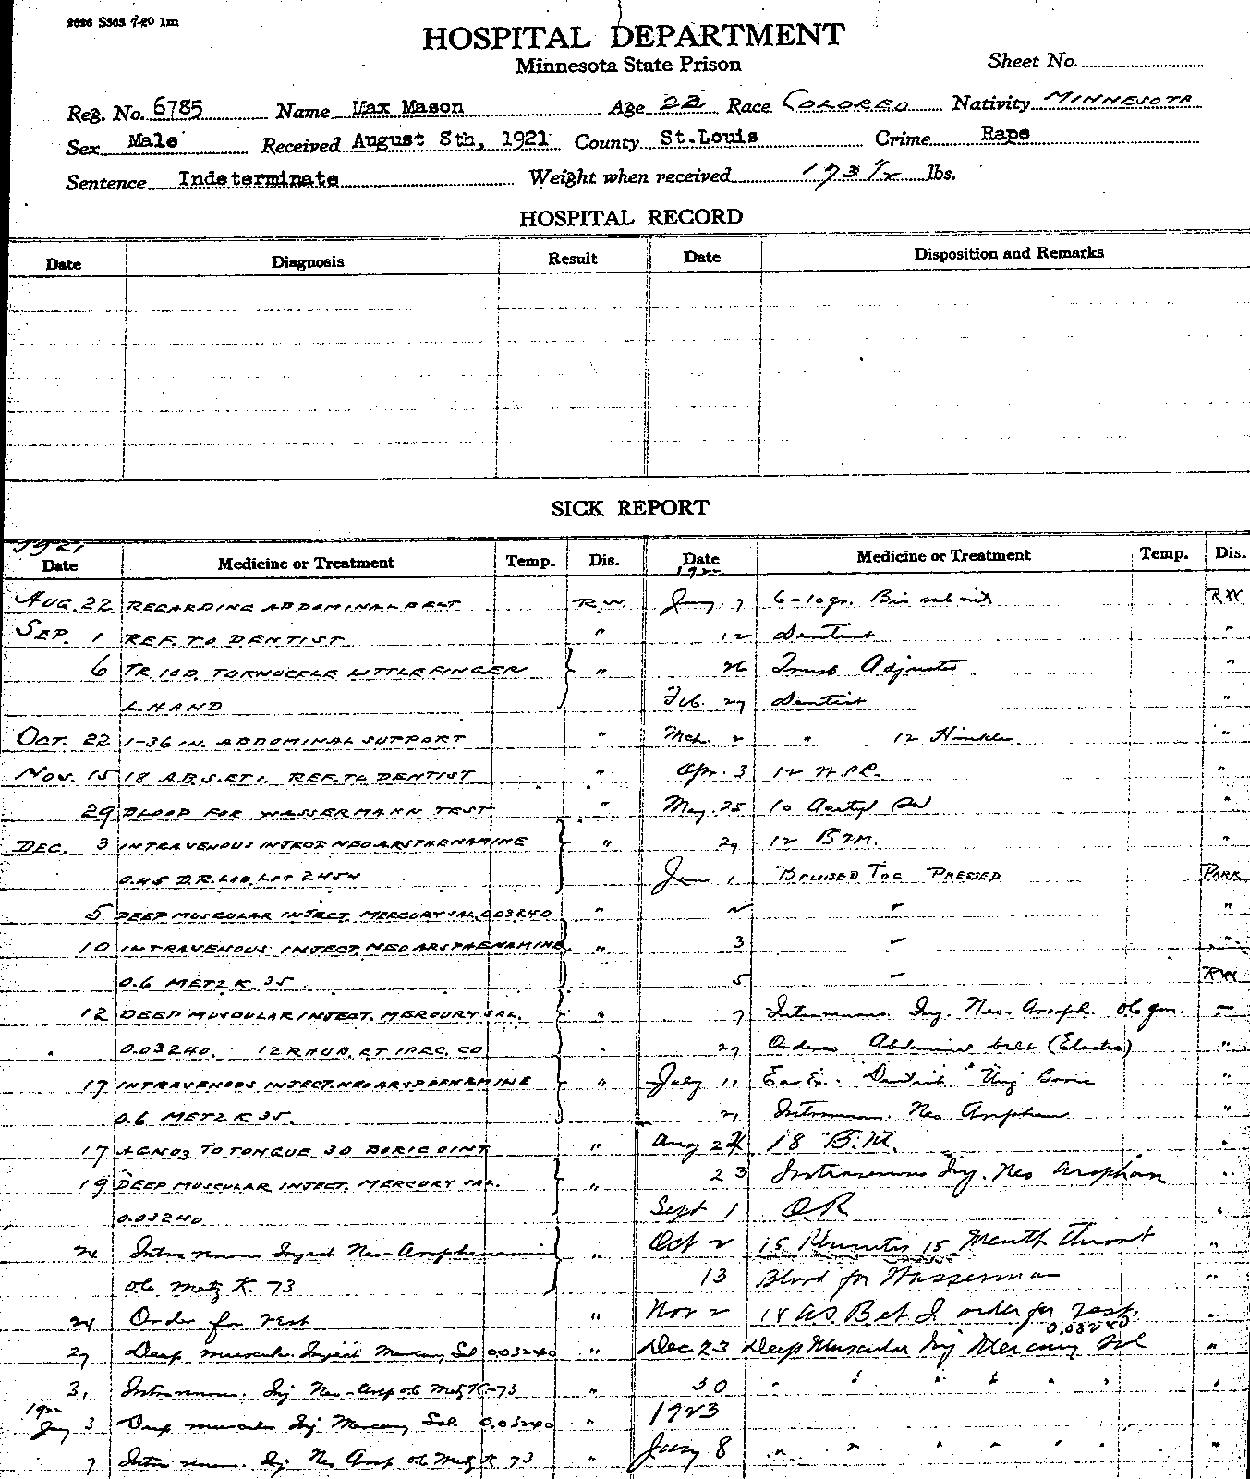 2626 S303 7-20 1m
HOSPITAL DEPARTMENT
Minnesota State Prison
Sheet No.
Reg. No. 6785 Name Max Mason Age 22 Race COLORED Nativity MINNESOTA
Sex Male Received August 8th, 1921 County St.Louis Crime Rape
Sentence Indeterminate Weight when received 173 1/2 lbs.
HOSPITAL RECORD
Date Diagnosis Result Date Disposition and Remarks
SICK REPORT
1921
Date Medicine or Treatment Temp. Dis. Date Medicine or Treatment Temp. Dis.
1922
AUG. 22 REGARDING ABDOMINAL BELT R.W. Jany 7 6-10 gr. RW
SEP. 1 REF. TO DENTIST " 12 Dentist "
6 TR. IOD. TO KNUCKLE LITTLE FINGER " 26 Truss Adjusted "
L HAND Feb. 27 Dentist "
OCT. 22 1-36 IN. ABDOMINAL SUPPORT " Mch. 2 " 12 Hinkle "
NOV. 15 18 A.B.S. ET I. REF. TO DENTIST " Apr. 3 12 "
29 BLOOD FOR WASSERMANN TEST " May 25 10 Acetyl "
DEC. 3 INTRAVENOUS INJECT NEOARSPHENAMINE " 29 12 "
0.45 D.R.L. LOT 2454 June 1 BRUISED TOE DRESSED PARK
5 DEEP MUSCULAR INJECT. MERCURY SAL. 0.03240 " 2 " "
10 INTRAVENOUS INJECT. NEOARSPHENAMINE " 3 " "
0.6 METZ K 35. 5 " RW
12 DEEP MUSCULAR INJECT. MERCURY SAL. " 7 Intravenous Inj. Neo-Arsph. 0.6 gm "
0.03240. 27 Abdominal belt (Elastic) "
17 INTRAVENOUS INJECT. NEOARSPHENAMINE " July 11 Dentist "
0.6 METZ K 35. 21 Intravenous. Neo Arsphen "
17 AGNO3 TO TONGUE 30 BORIC OINT " Aug 22 18 B.M. "
19 DEEP MUSCULAR INJECT. MERCURY SAL. " 23 Intravenous Inj. Neo Arsphen "
0.03240 Sept 1 "
24 Intravenous Inject Neo-Arsphenamine " Oct 2 15 15 Mouth throat "
0.6 Metz K 73 13 Blood for Wasserman "
24 Order for rest " Nov 2 18 order for rest. "
0.03240
27 Deep muscular Inject Mercury Sal 0.03240 " Dec 23 Deep Muscular Inj Mercury Sal "
31 Intravenous. Inj Neo-Arsp 0.6 Metz K-73 " 30 " " " " " " "
1922 Jany 3 Deep muscular Inj Mercury Sal. 0.03240 " 1923
7 Intravenous. Inj. Neo Arsp 0.6 Metz K 73 " Jany 8 " " " " " " "